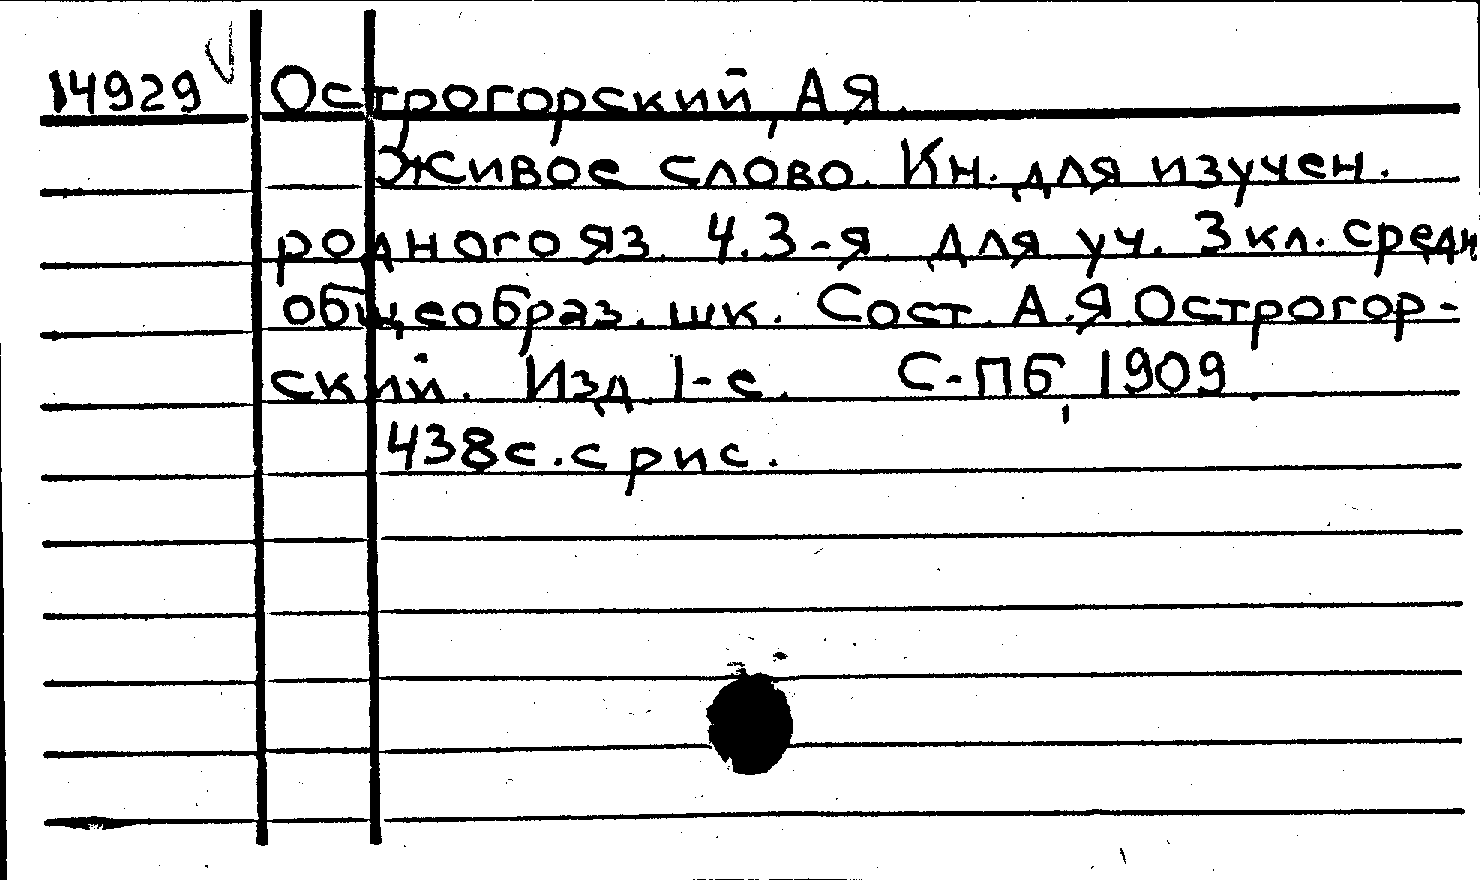 14929 Острогорский, А Я.
Живое слово. Кн. для изучен.
родного яз. Ч.3-я. Для уч. 3 кл. средн
общеобраз. шк. Сост. А.Я Острогор-
ский. Изд. 1-е. С-Пб, 1909.
438 с. с рис.